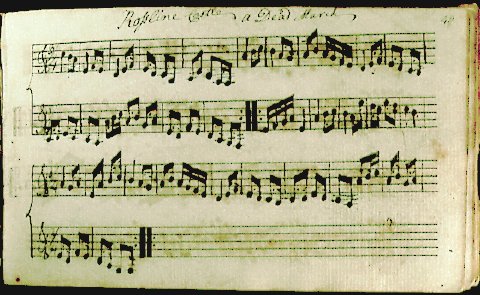 Roſsline Castle a Dead March